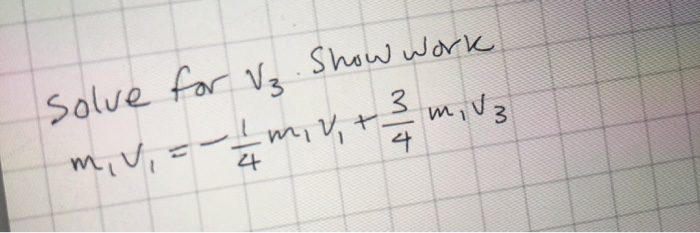 Solve for V₃. Show work
m₁V₁ = -1/4 m₁V₁ + 3/4 m₁V₃